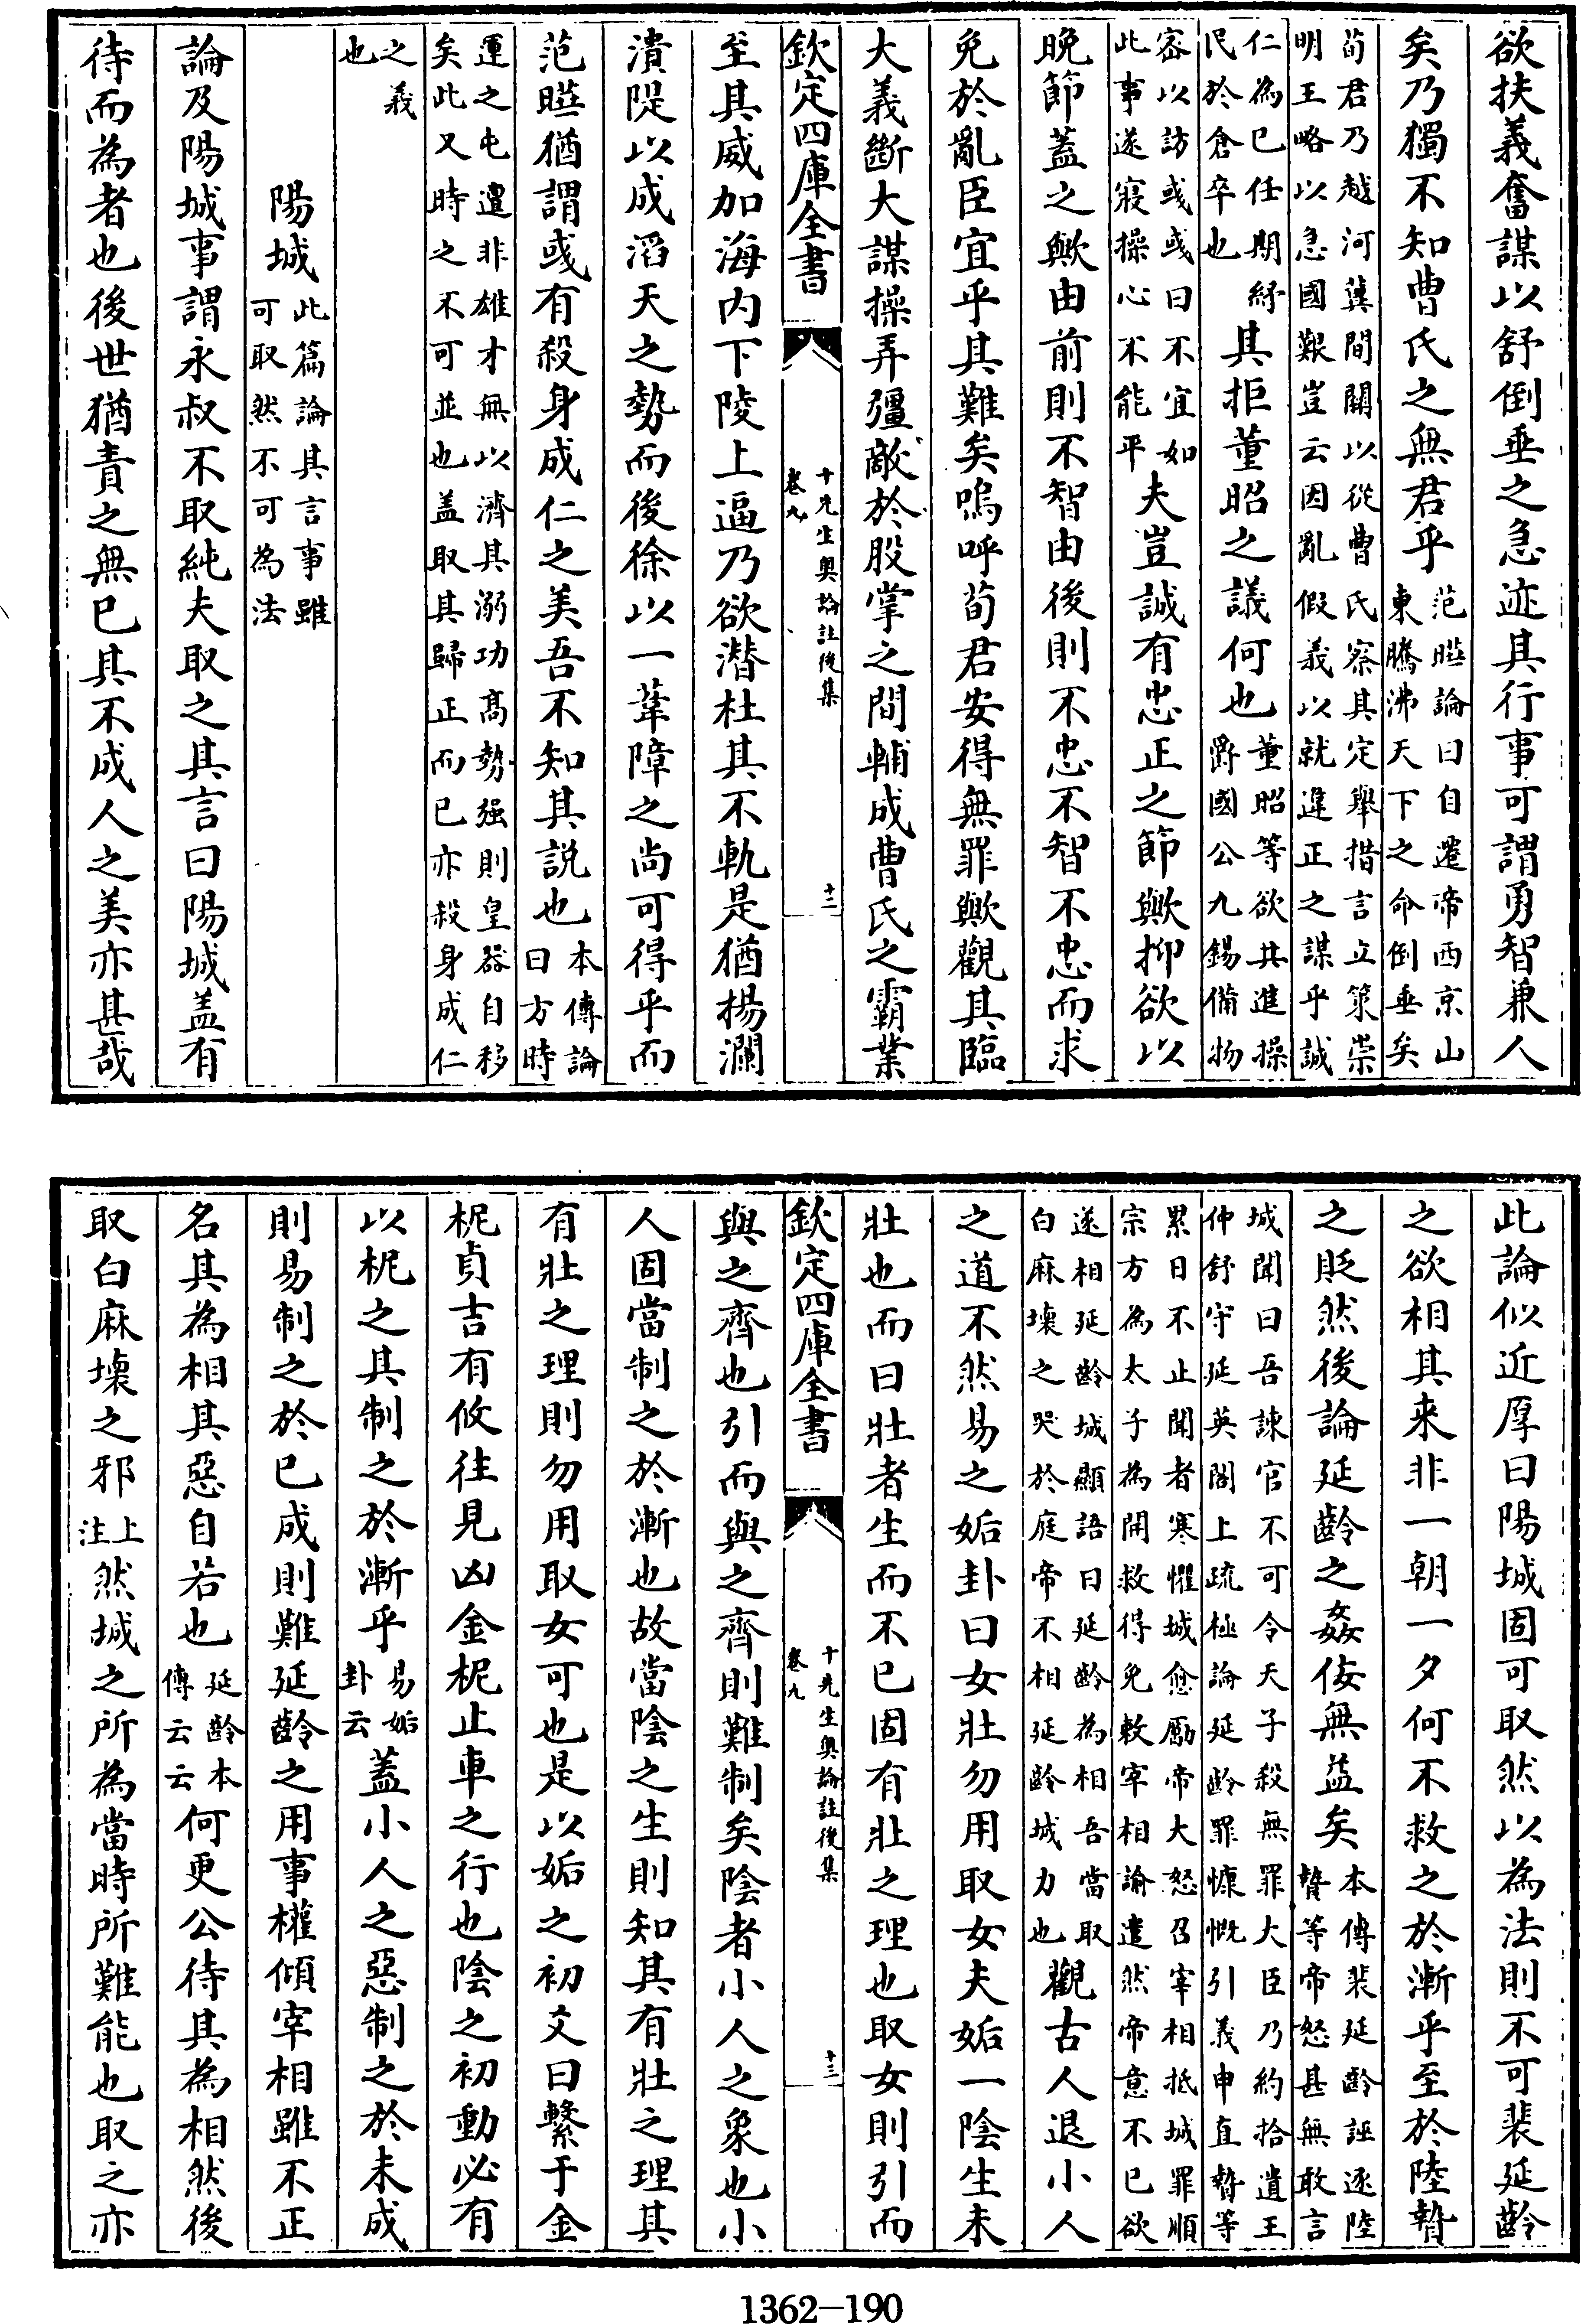 欲扶義奮謀以舒倒垂之急迹其行事可謂勇智兼人
矣乃獨不知曹氏之無君乎范曄論曰自遷帝西京山東騰沸天下之命倒垂矣
荀君乃越河冀間關以從曹氏察其定舉措言立策崇明王略以急國艱豈云因亂假義以就違正之謀乎誠
仁為已任期紓民於倉卒也其拒董昭之議何也董昭等欲共進操爵國公九錫備物
密以訪彧彧曰不宜如此事遂寢操心不能平夫豈誠有忠正之節歟抑欲以
晚節蓋之歟由前則不智由後則不忠不智不忠而求
免於亂臣宜乎其難矣嗚呼荀君安得無罪歟觀其臨
大義斷大謀操弄彊敵於股掌之間輔成曹氏之霸業
欽定四庫全書 十先生奧論註後集 卷九 十二
至其威加海内下陵上逼乃欲潜杜其不軌是猶揚瀾
潰隄以成滔天之勢而後徐以一葦障之尚可得乎而
范曄猶謂彧有殺身成仁之美吾不知其説也本傳論曰方時
運之屯邅非雄才無以濟其溺功髙勢强則皇器自移矣此又時之不可並也盖取其歸正而已亦殺身成仁
之義也
陽城此篇論其言事雖可取然不可為法
論及陽城事謂永叔不取純夫取之其言曰陽城盖有
待而為者也後世猶責之無已其不成人之美亦甚哉
此論似近厚曰陽城固可取然以為法則不可裴延齡
之欲相其来非一朝一夕何不救之於漸乎至於陸贄
之貶然後論延齡之姦佞無益矣本傳裴延齡誣逐陸贄等帝怒甚無敢言
城聞曰吾諫官不可令天子殺無罪大臣乃約拾遺王仲舒守延英閤上疏極論延齡罪慷慨引義申直贄等
累日不止聞者寒懼城愈勵帝大怒召宰相抵城罪順宗方為太子為開救得免敕宰相諭遣然帝意不已欲
遂相延齡城顯語曰延齡為相吾當取白麻壊之哭於庭帝不相延齡城力也觀古人退小人
之道不然易之姤卦曰女壯勿用取女夫姤一陰生未
壯也而曰壯者生而不已固有壯之理也取女則引而
欽定四庫全書 十先生奧論註後集 卷九 十三
與之齊也引而與之齊則難制矣陰者小人之象也小
人固當制之於漸也故當陰之生則知其有壯之理其
有壯之理則勿用取女可也是以姤之初爻曰繫于金
柅貞吉有攸往見凶金柅止車之行也陰之初動必有
以柅之其制之於漸乎易姤卦云蓋小人之惡制之於未成
則易制之於已成則難延齡之用事權傾宰相雖不正
名其為相其惡自若也延齡本傳云云何更公待其為相然後
取白麻壊之邪上注然城之所為當時所難能也取之亦
1362—190